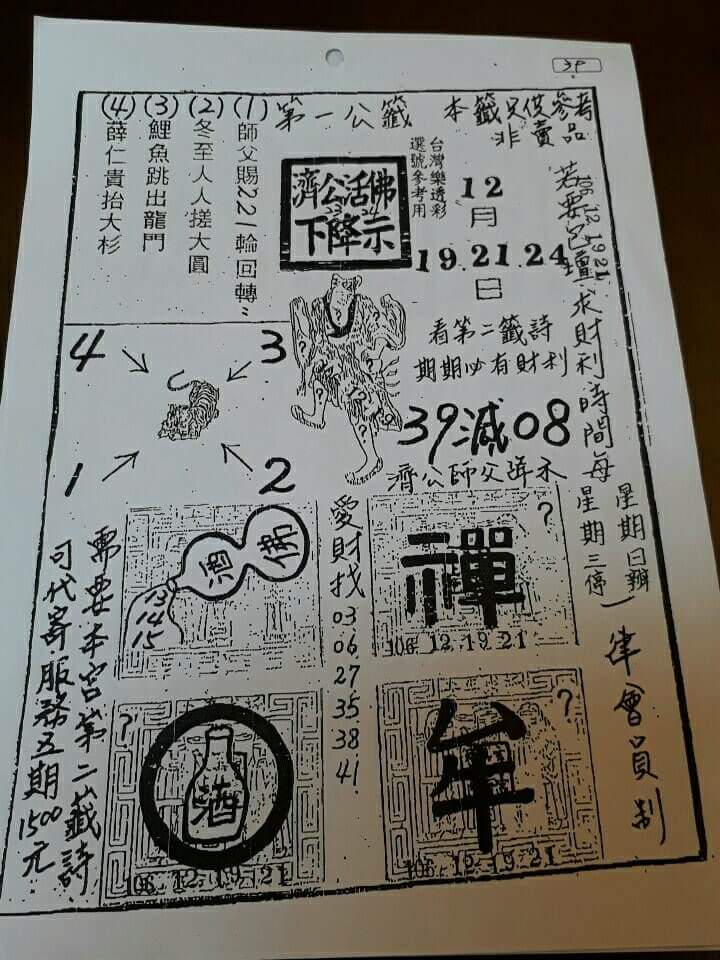 3P
本籤只供參考
非賣品
第一公籤
(1)師父賜221輪回轉
(2)冬至人人搓大圓
(3)鯉魚跳出龍門
(4)薛仁貴抬大杉
台灣樂透彩
選號參考用
濟公活佛
下降示
12
月
19.21.24
日
看第二籤詩
期期必有財利
39減08
濟公師父降示
求財利時間每
星期日辦
星期三停
一律會員制
4
3
1
2
佛
13
14
15
愛財找
03
06
27
35
38
41
?
禪
106.12.19.21
?
酒
106.12.19.21
?
牟
106.12.19.21
需要本宮第二籤詩
可代寄服務五期1500元